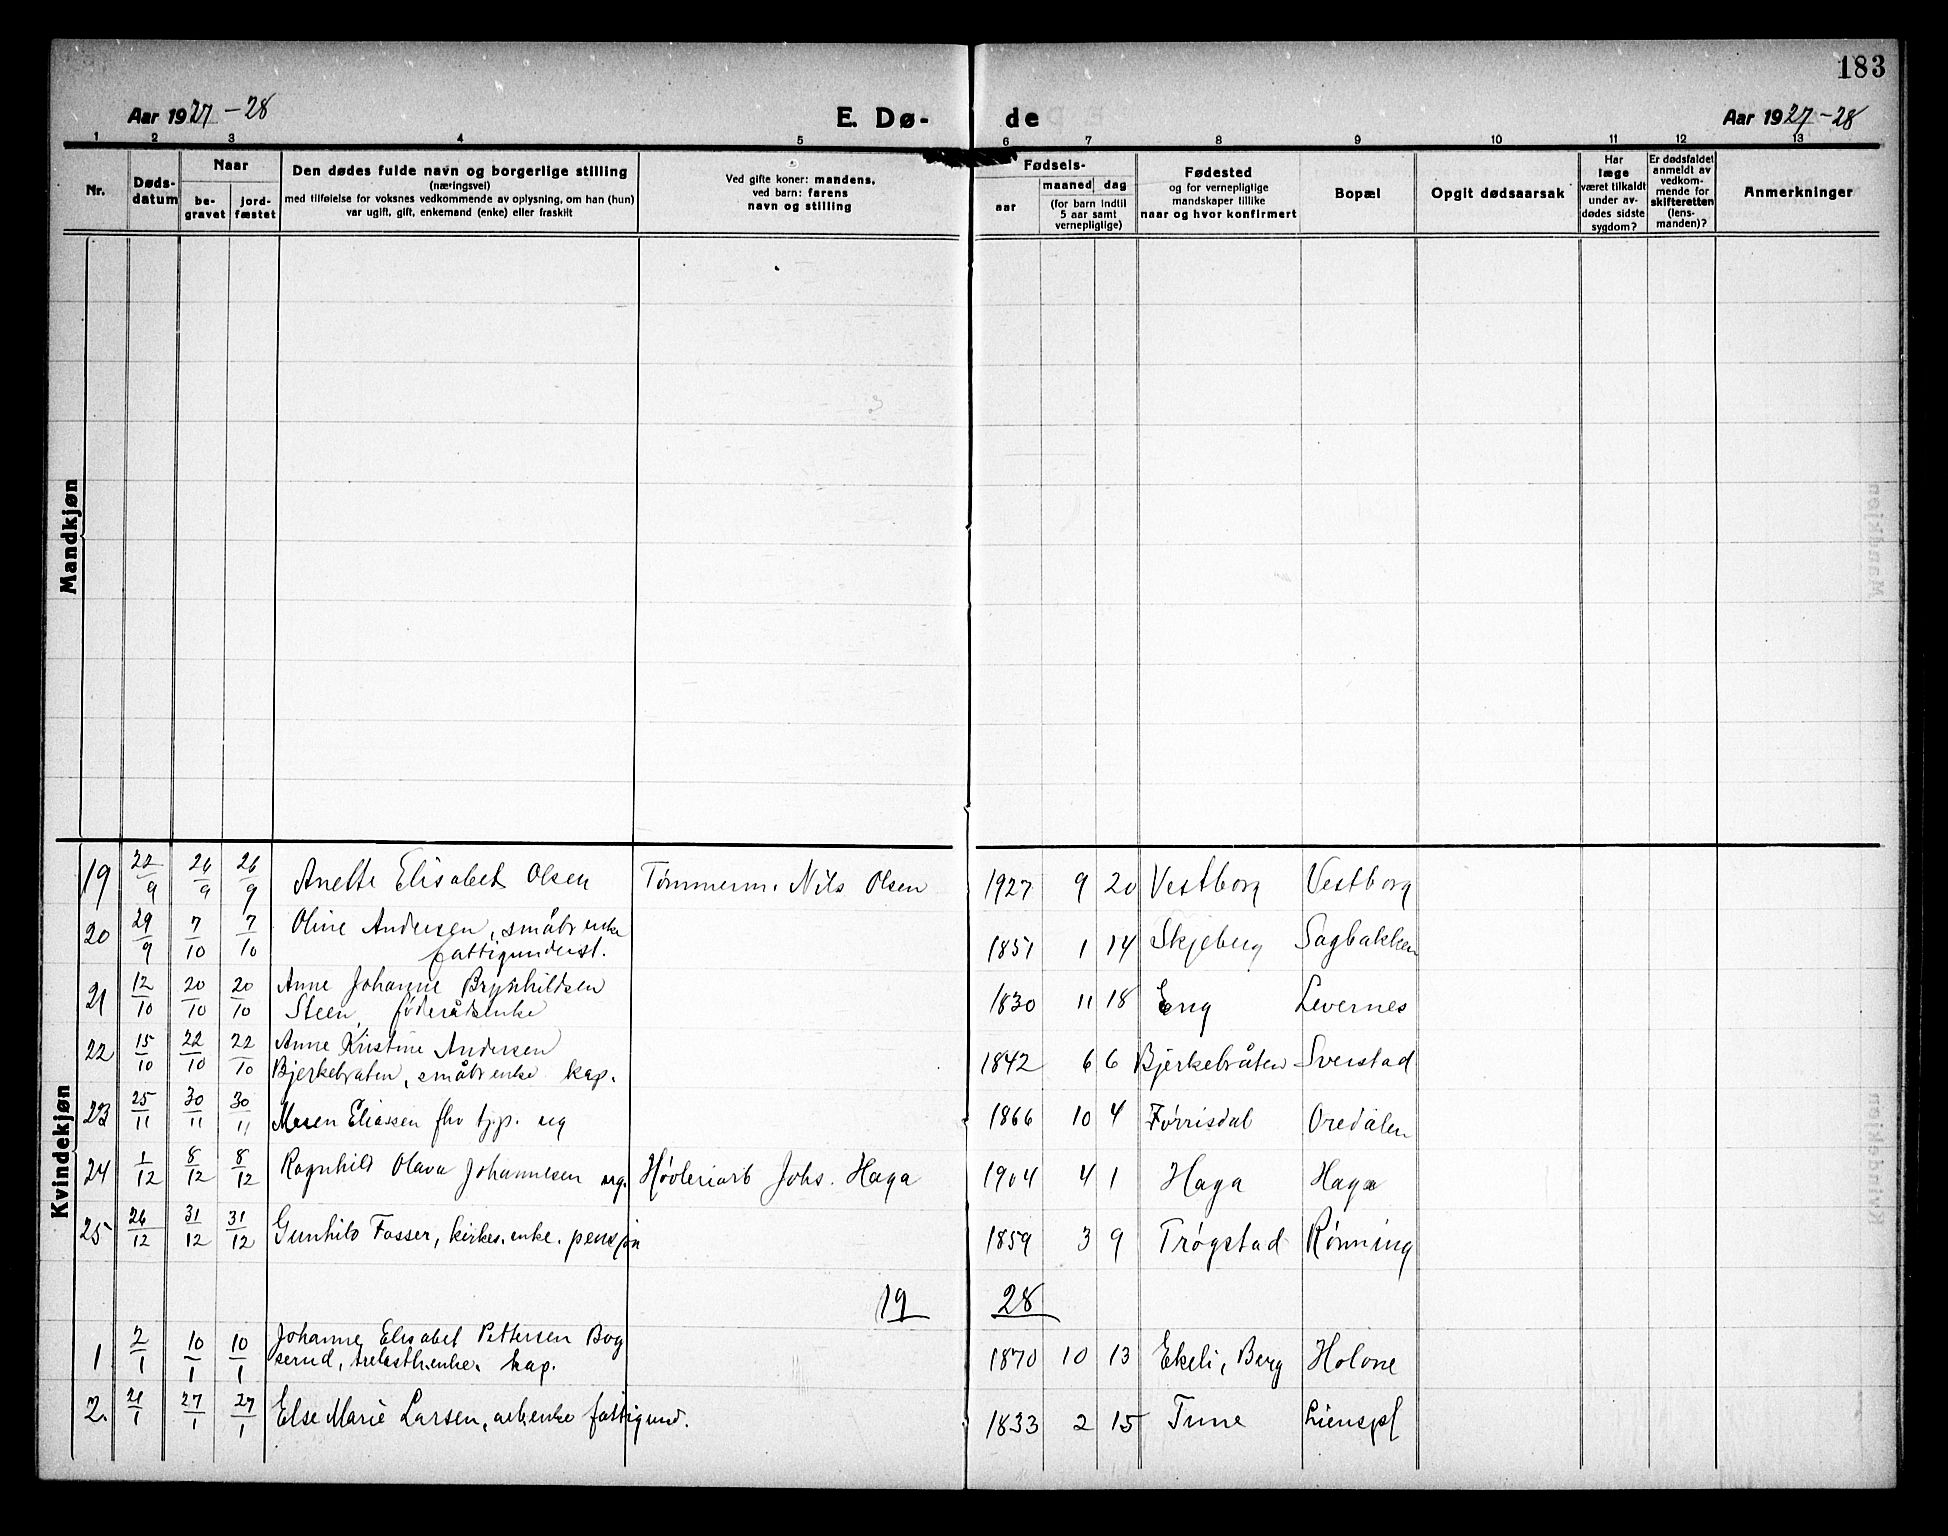 183
Aar 1927-28
E. Dø-
de
Aar 1927-28
1 2 3 4 5 6 7 8 9 10 11 12 13
Nr.
Døds-
datum
Naar
be-
gravet
jord-
fæstet
Den dødes fulde navn og borgerlige stilling
(næringsvei)
med tilføielse for voksnes vedkommende av oplysning, om han (hun)
var ugift, gift, enkemand (enke) eller fraskilt
Ved gifte koner: mandens,
ved barn: farens
navn og stilling
Fødsels-
aar
maaned dag
(for barn indtil
5 aar samt
vernepligtige)
Fødested
og for vernepligtige
mandskaper tillike
naar og hvor konfirmert
Bopæl
Opgit dødsaarsak
Har
læge
været tilkaldt
under av-
dødes sidste
sygdom?
Er dødsfaldet
anmeldt av
vedkom-
mende for
skifteretten
(lens-
manden)?
Anmerkninger
Mandkjøn
Kvindekjøn
19 22/9 26/9 26/9 Anette Elisabet Olsen Tømmerm. Nils Olsen 1927 9 20 Vestborg Vestborg
20 29/9 7/10 7/10 Oline Andersen, småbr enke
fattigunderst. 1851 1 14 Skjeberg Sagbakken
21 12/10 20/10 20/10 Anne Johanne Brynhildsen
Steen, føderådsenke 1830 11 18 Eng Levernes
22 15/10 22/10 22/10 Anne Kristine Andersen
Bjerkebråten, småbr enke kap. 1842 6 6 Bjerkebråten Sverstad
23 25/11 30/11 30/11 Maren Eliassen fhv tjp. ug 1866 10 4 Førrisdal Oredalen
24 1/12 8/12 8/12 Ragnhild Olava Johannesen ug. Høvleriarb Johs. Haga 1904 4 1 Haga Haga
25 26/12 31/12 31/12 Gunhild Fosser, kirkes. enke. pensjon 1859 3 9 Trøgstad Rønning
19 28
1 2/1 10/1 10/1 Johanne Elisabet Pettersen Bog
serud, trelasth.enke. kap. 1870 10 13 Ekeli, Berg Holone
2. 21/1 27/1 27/1 Else Marie Larsen, arb.enke fattigund. 1833 2 15 Tune Lienspl